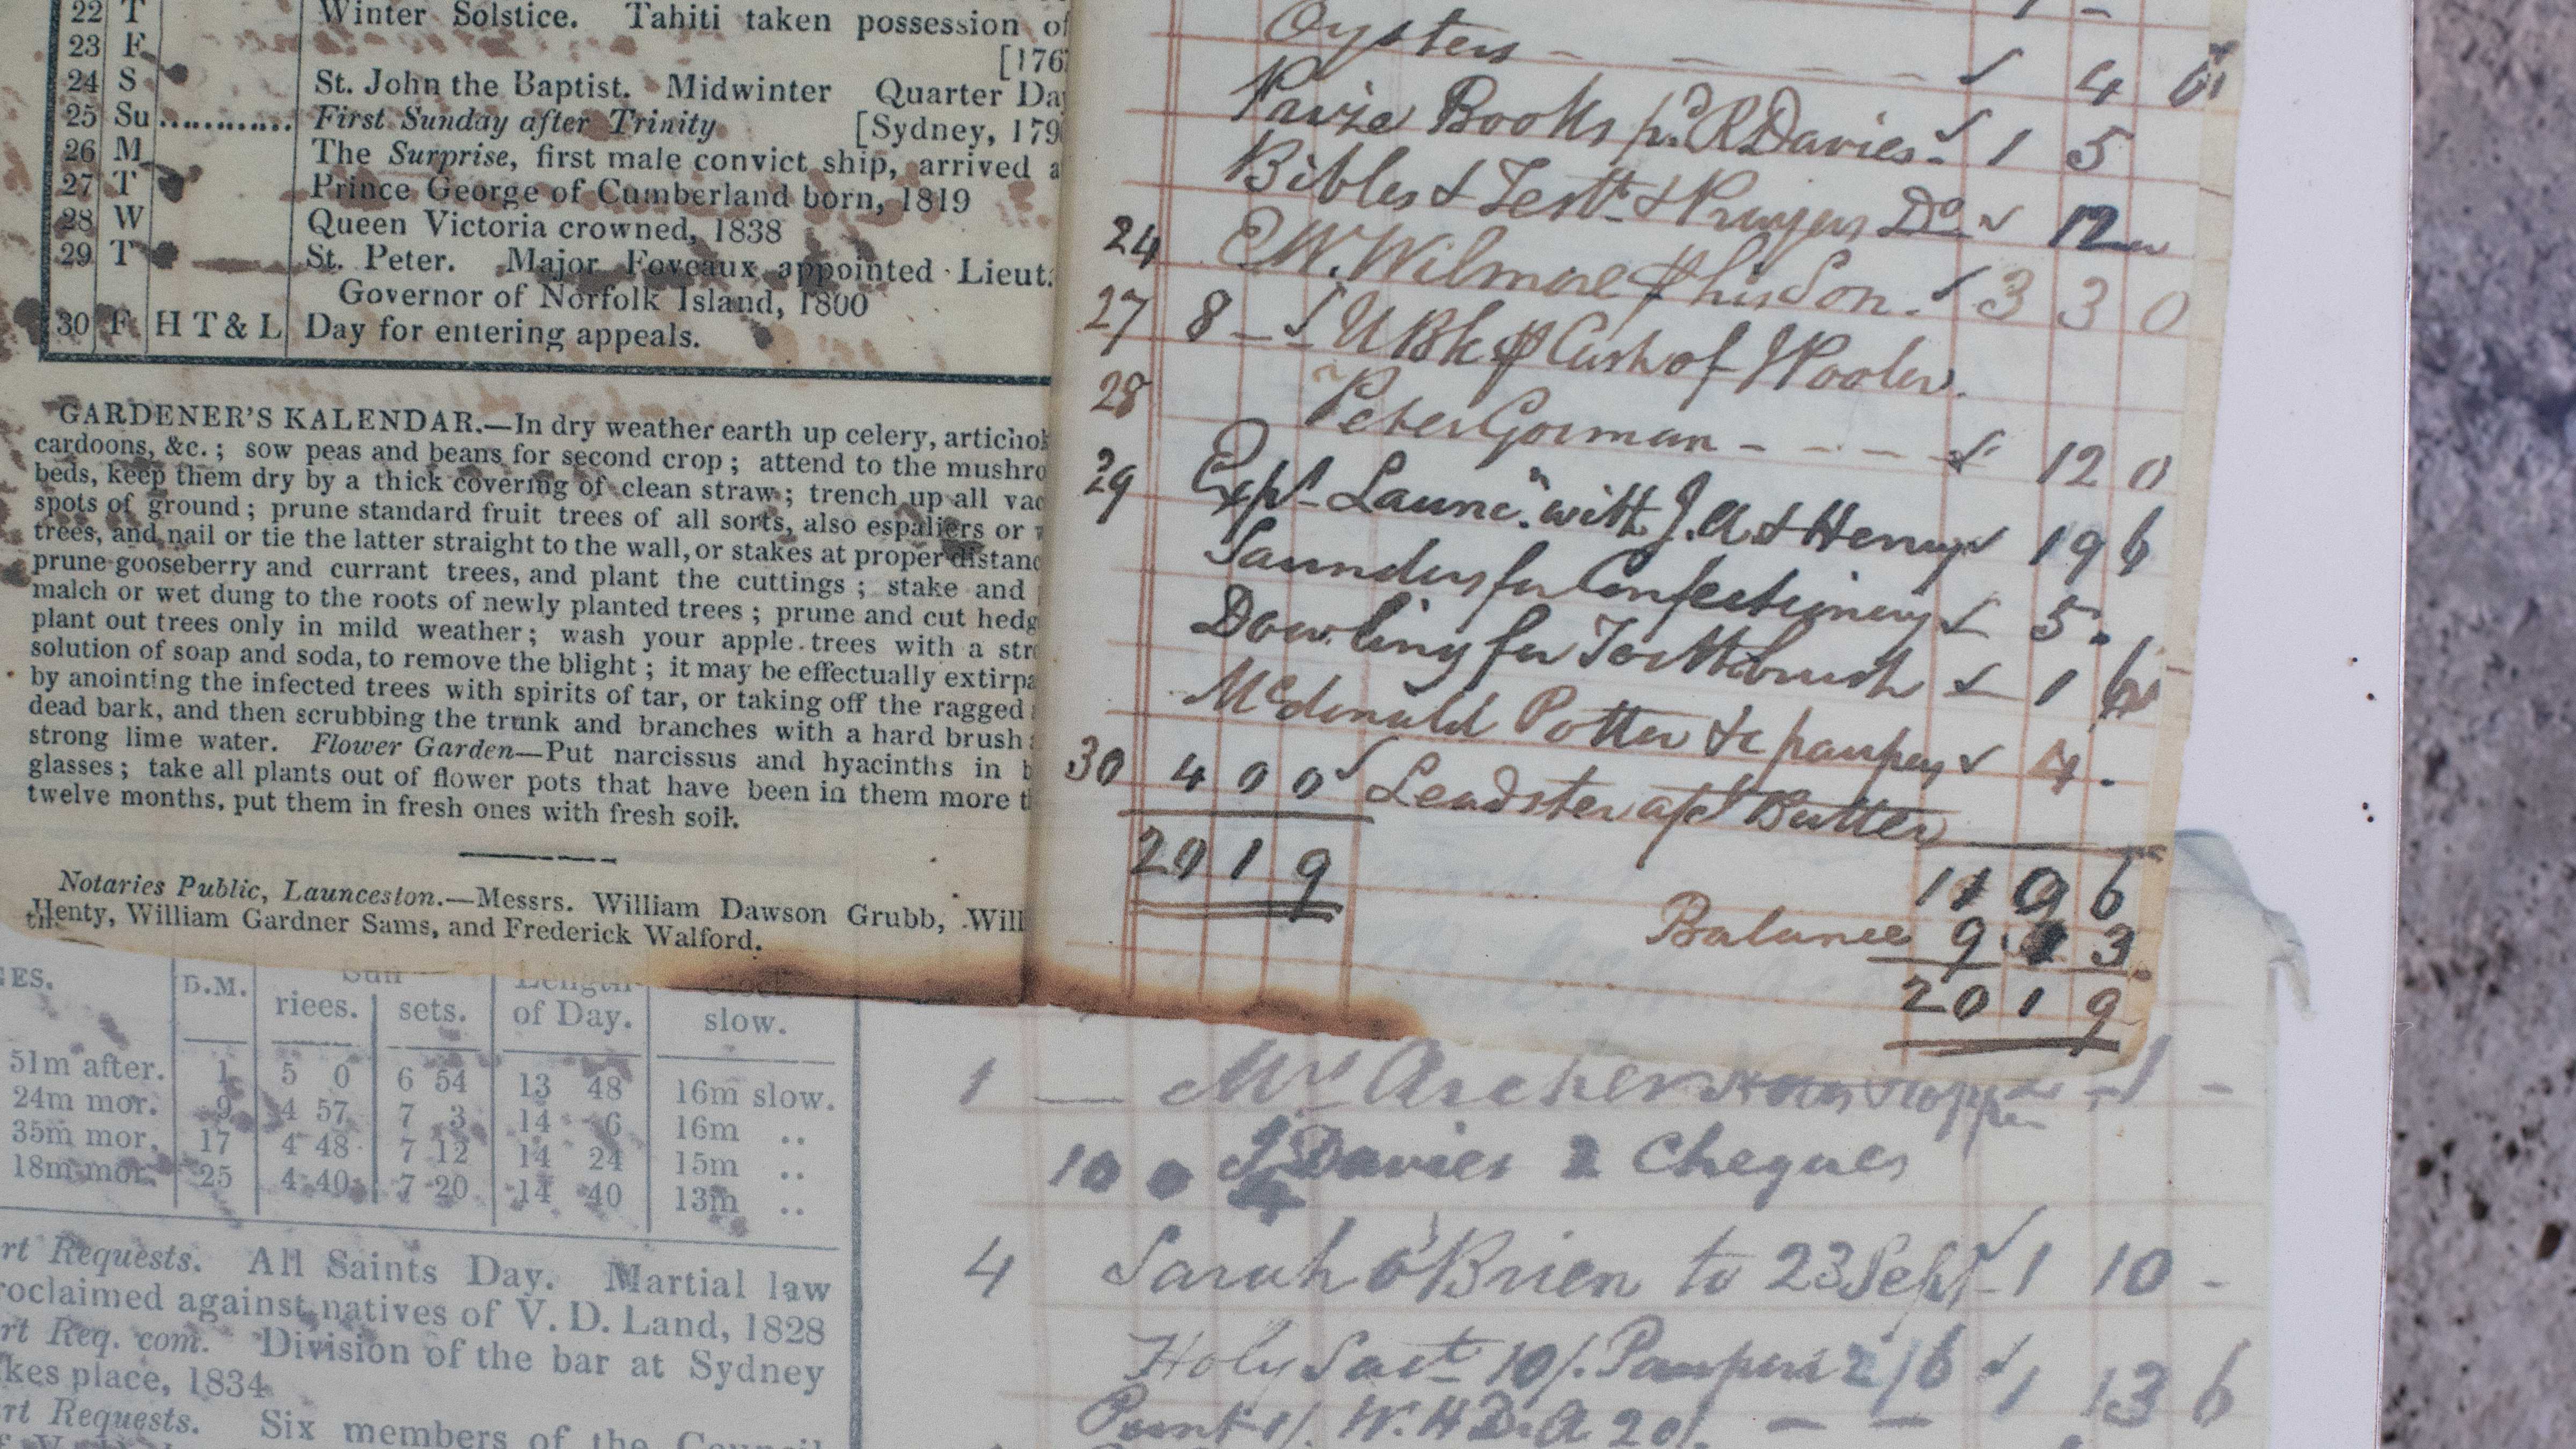 22 T Winter Solstice. Tahiti taken possession of
23 F [176
24 S St. John the Baptist. Midwinter Quarter Da
25 Su ............ First Sunday after Trinity [Sydney, 179
26 M The Surprise, first male convict ship, arrived a
27 T Prince George of Cumberland born, 1819
28 W Queen Victoria crowned, 1838
29 T St. Peter. Major Foveaux appointed Lieut.
Governor of Norfolk Island, 1800
30 F H T & L Day for entering appeals.
GARDENER'S KALENDAR.—In dry weather earth up celery, artichok
cardoons, &c.; sow peas and beans for second crop; attend to the mushro
beds, keep them dry by a thick covering of clean straw; trench up all vac
spots of ground; prune standard fruit trees of all sorts, also espaliers or
trees, and nail or tie the latter straight to the wall, or stakes at proper distanc
prune gooseberry and currant trees, and plant the cuttings; stake and
malch or wet dung to the roots of newly planted trees; prune and cut hedg
plant out trees only in mild weather; wash your apple trees with a str
solution of soap and soda, to remove the blight; it may be effectually extirpa
by anointing the infected trees with spirits of tar, or taking off the ragged
dead bark, and then scrubbing the trunk and branches with a hard brush
strong lime water. Flower Garden—Put narcissus and hyacinths in b
glasses; take all plants out of flower pots that have been in them more t
twelve months, put them in fresh ones with fresh soil.
Notaries Public, Launceston.—Messrs. William Dawson Grubb, Will
Henty, William Gardner Sams, and Frederick Walford.
Oysters - - - - - ✓ 4 6
Prize Books pd R Davies ✓ 1 5
Bibles & Testts & Prayers Do ✓ 12
24 E W. Wilmore his Son. ✓ 3 3 0
27 8 - - ✓ U Bk Cash of Wooler.
28 Peter Gorman - - - - ✓ 12 0
29 Exps Launc. with J. A & Henry ✓ 19 6
Saunders for Confectionery ✓ 5.
Dowling for Toothbrush ✓ 1 6
McDonald Potter &c paupers ✓ 4.
30 4 0 0 ✓ Leadster Butter
20 1 9
11 9 6
Balance 9 3
20 1 9
GES. D.M. Sun Length
riees. sets. of Day. slow.
51m after. 1 5 0 6 54 13 48 16m slow.
24m mor. 9 4 57 7 3 14 6 16m ..
35m mor. 17 4 48 7 12 14 24 15m ..
18m mor. 25 4 40 7 20 14 40 13m ..
rt Requests. All Saints Day. Martial law
roclaimed against natives of V. D. Land, 1828
rt Req. com. Division of the bar at Sydney
kes place, 1834
rt Requests. Six members of the Council
1 — Mrs Archer - 1 -
10 0 Davies 2 Cheques
4 Sarah O'Brien to 23 Sept ✓ 1 10 -
Holy Sact 10/. Paupers 2/6 ✓ 1 13 6
W. H D. A 20/. — —